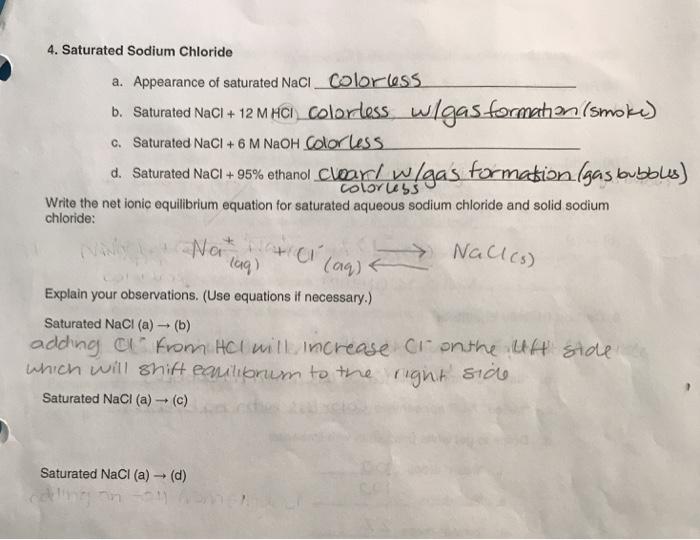 4. Saturated Sodium Chloride
a. Appearance of saturated NaCl colorless
b. Saturated NaCl + 12 M HCl colorless w/gas formation (smoke)
c. Saturated NaCl + 6 M NaOH colorless
d. Saturated NaCl + 95% ethanol clear/ w/gas formation (gas bubbles)
colorless
Write the net ionic equilibrium equation for saturated aqueous sodium chloride and solid sodium
chloride:
Na⁺(aq) + Cl⁻(aq) ⇌ NaCl(s)
Explain your observations. (Use equations if necessary.)
Saturated NaCl (a) → (b)
adding Cl⁻ from HCl will increase Cl⁻ on the left side
which will shift equilibrium to the right side
Saturated NaCl (a) → (c)
Saturated NaCl (a) → (d)